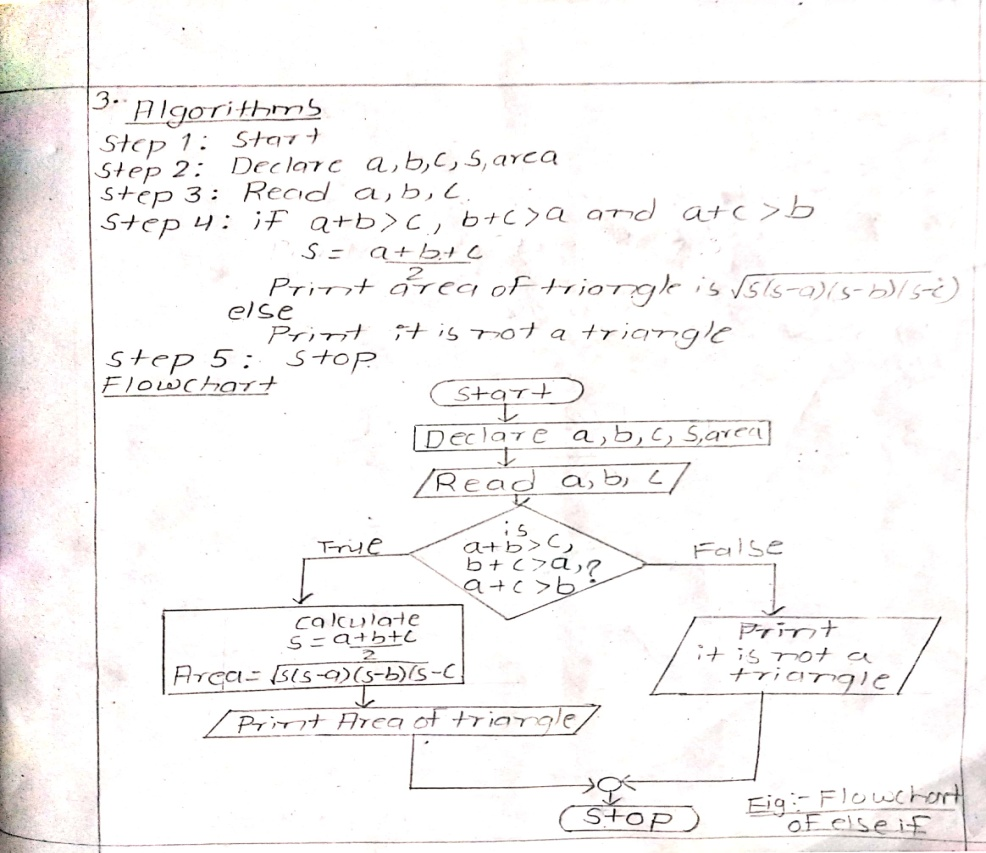 3. Algorithms
Step 1: Start
Step 2: Declare a, b, c, s, area
Step 3: Read a, b, c.
Step 4: if a+b>c, b+c>a and a+c>b
s = a+b+c
2
Print area of triangle is √s(s-a)(s-b)(s-c)
else
Print it is not a triangle
Step 5: Stop
Flowchart
Start
Declare a, b, c, s, area
Read a, b, c
is
a+b>c,
b+c>a,?
a+c>b
True
False
calculate
s = a+b+c
2
Area = √s(s-a)(s-b)(s-c
Print Area of triangle
Print
it is not a
triangle
Stop
Fig:- Flowchart
of else if